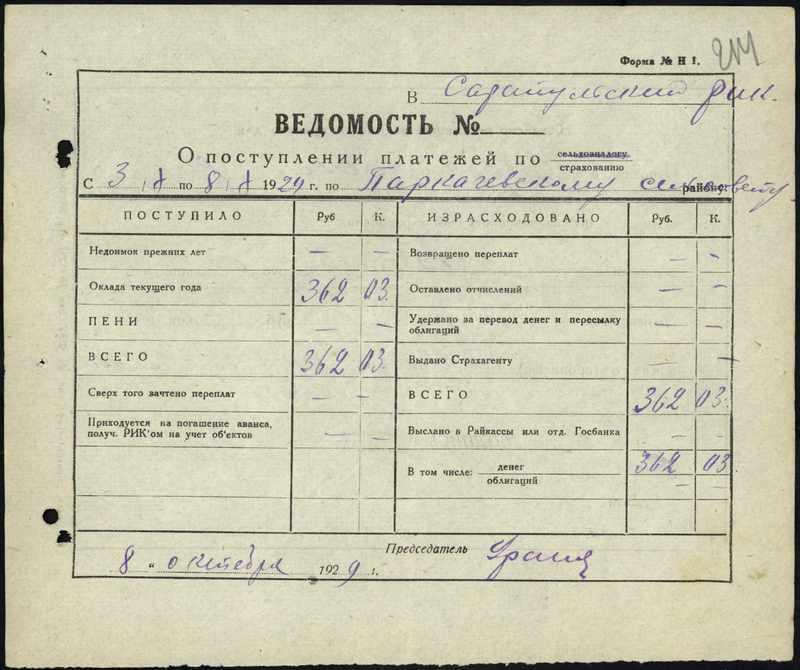 Форма № Н 1.
214
В Сарапульский рик.
ВЕДОМОСТЬ №
О поступлении платежей по сельхозналогу
страхованию
С 3/X по 8/X 1929 г. по Паркачевскому сельсовету району
ПОСТУПИЛО Руб К. ИЗРАСХОДОВАНО Руб. К.
Недоимок прежних лет — — Возвращено переплат — —
Оклада текущего года 362 03. Оставлено отчислений — —
ПЕНИ — — Удержано за перевод денег и пересылку облигаций — —
ВСЕГО 362 03. Выдано Страхагенту — —
Сверх того зачтено переплат — — ВСЕГО 362 03.
Приходуется на погашение аванса, Выслано в Райкассы или отд. Госбанка — —
получ. РИК'ом на учет об'ектов — —
В том числе: денег 362 03.
облигаций — —
Председатель
8 " октября 1929 г.